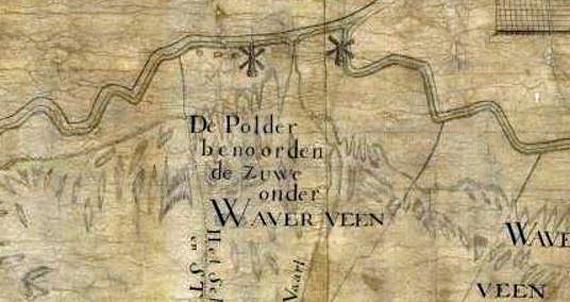 De Polder
benoorden
de Zuwe
onder
WAVER VEEN
WAVE
VEEN
Het Sch
en ST
Vaart